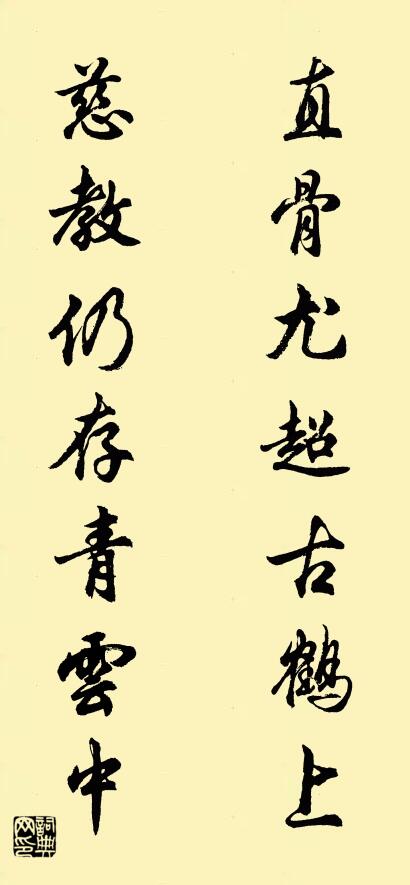 直骨尤超古鹤上
慈教仍存青雲中
詞典网印